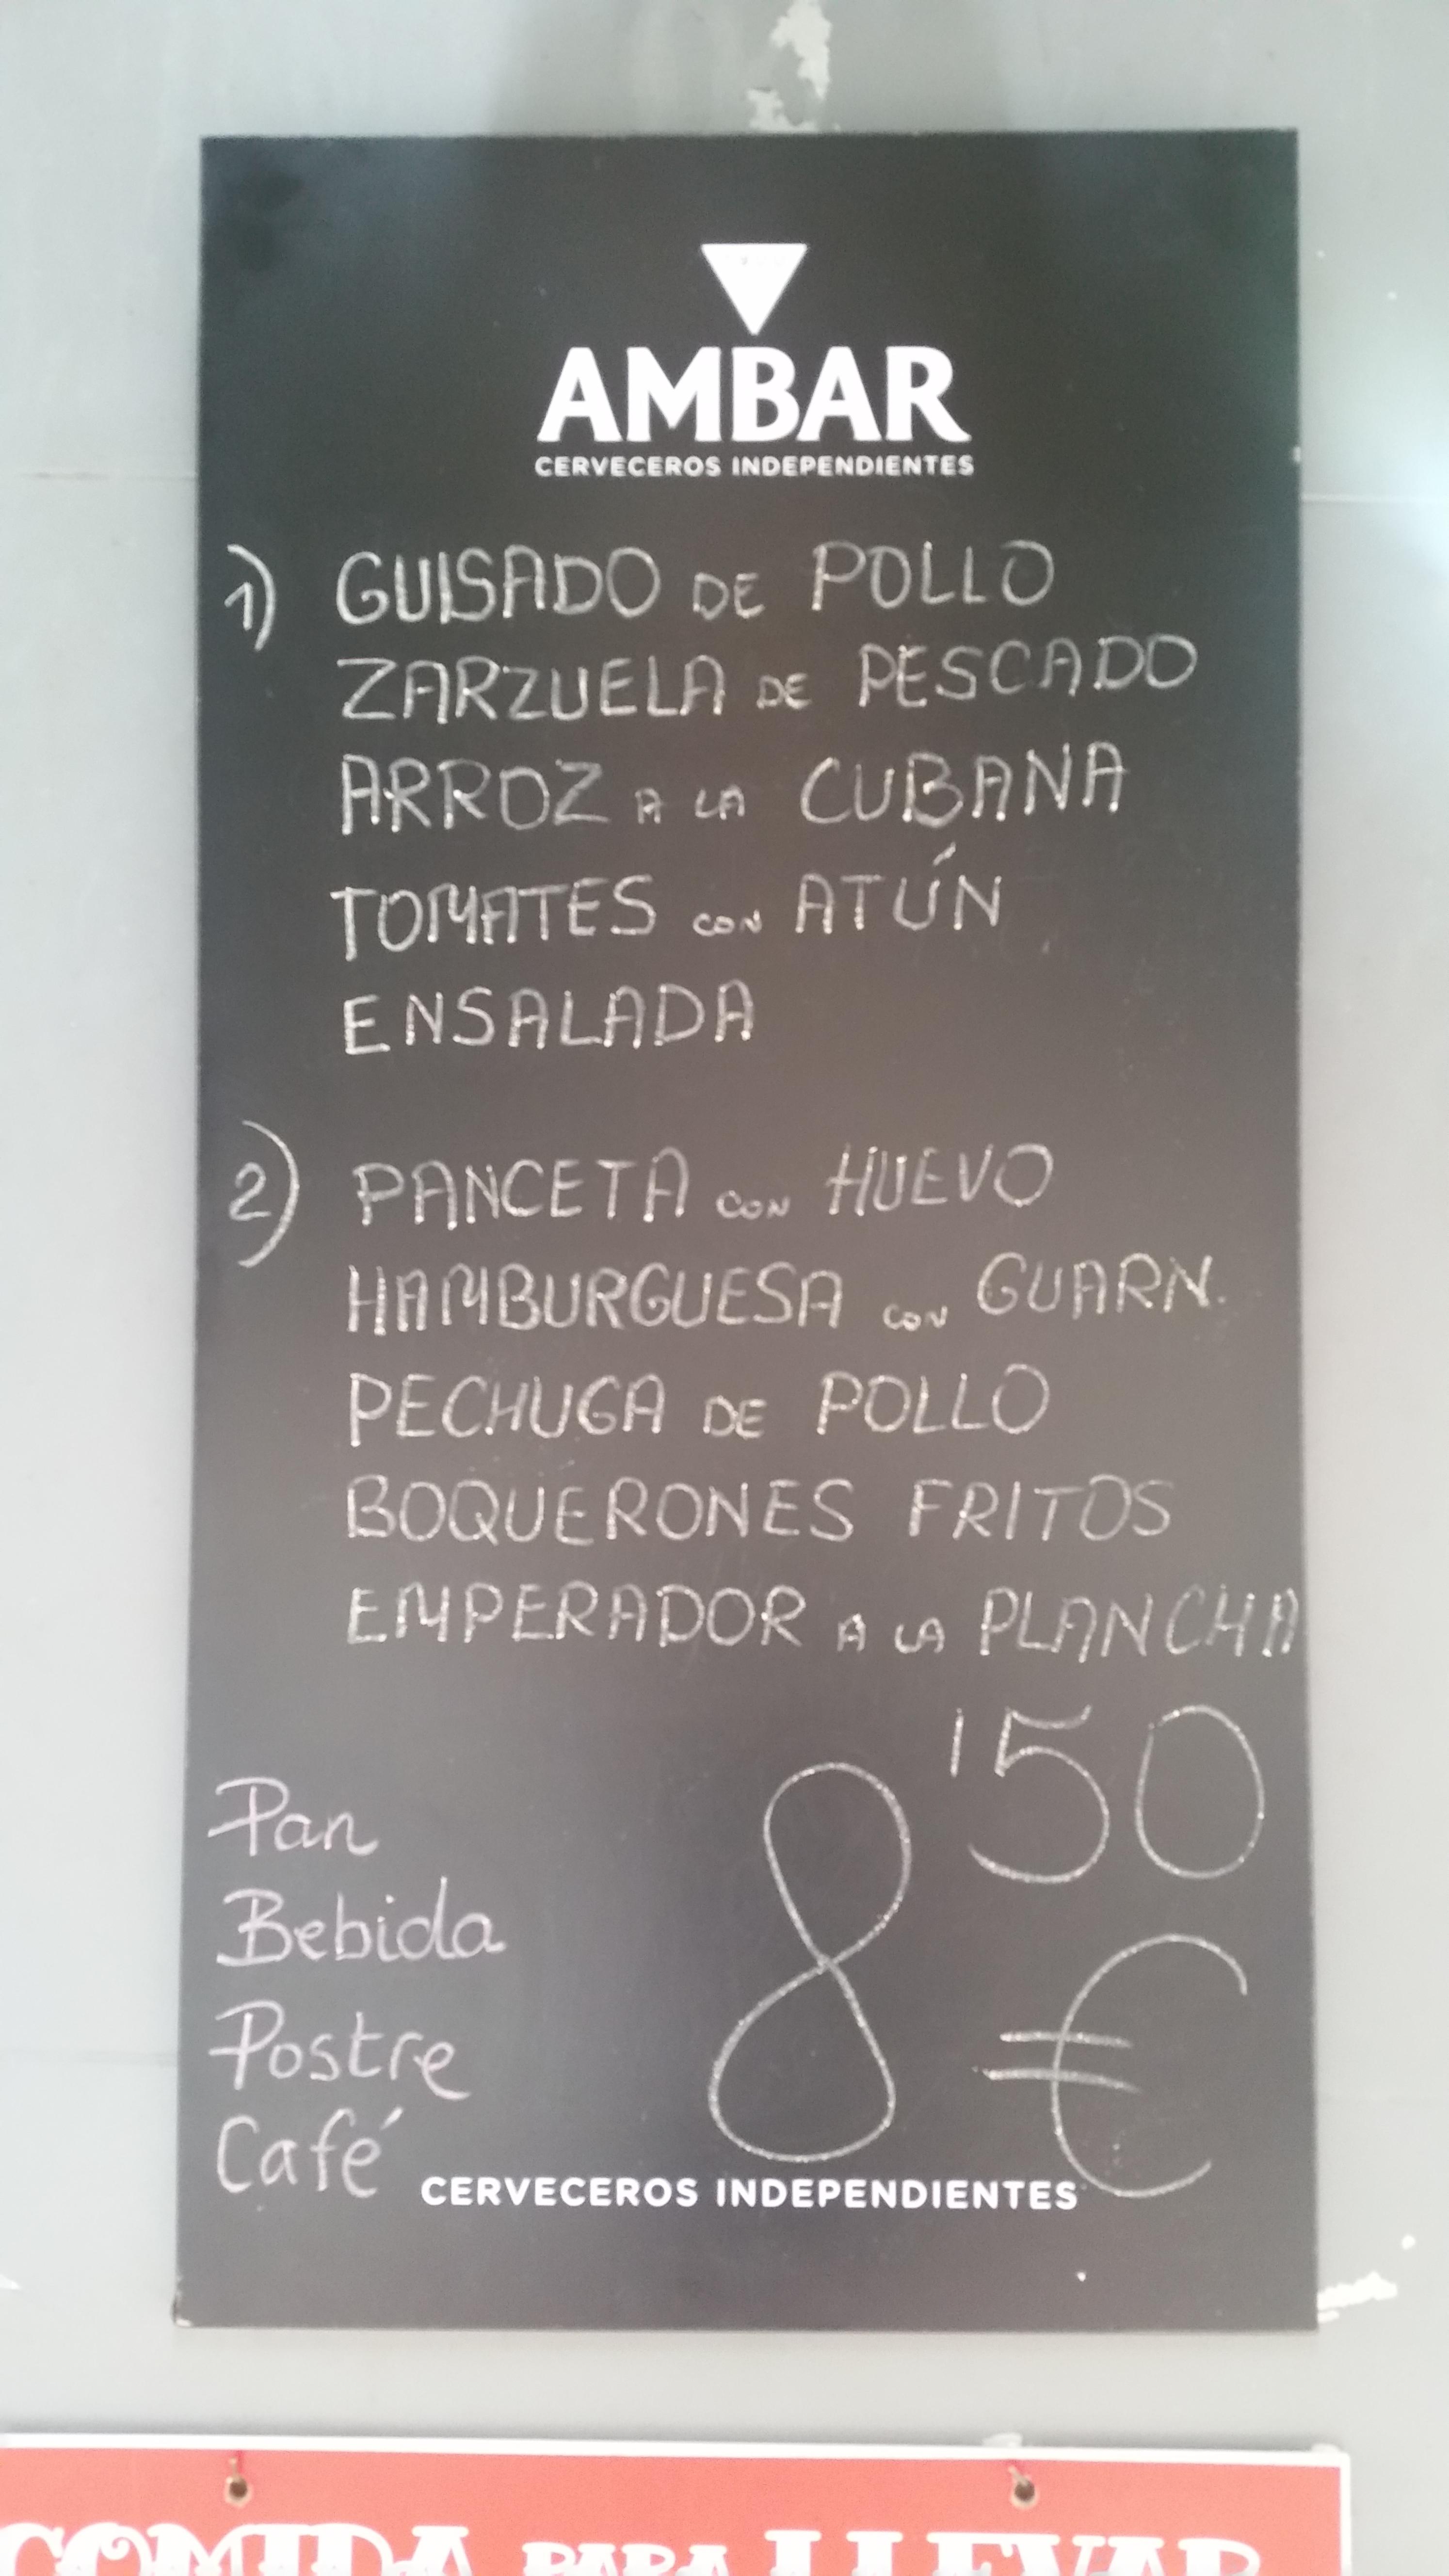 AMBAR
CERVECEROS INDEPENDIENTES
1) GUISADO DE POLLO
ZARZUELA DE PESCADO
ARROZ A LA CUBANA
TOMATES CON ATÚN
ENSALADA
2) PANCETA CON HUEVO
HAMBURGUESA CON GUARN.
PECHUGA DE POLLO
BOQUERONES FRITOS
EMPERADOR A LA PLANCHA
Pan
Bebida
Postre
Café
8'50 €
CERVECEROS INDEPENDIENTES
COMIDA PARA LLEVAR